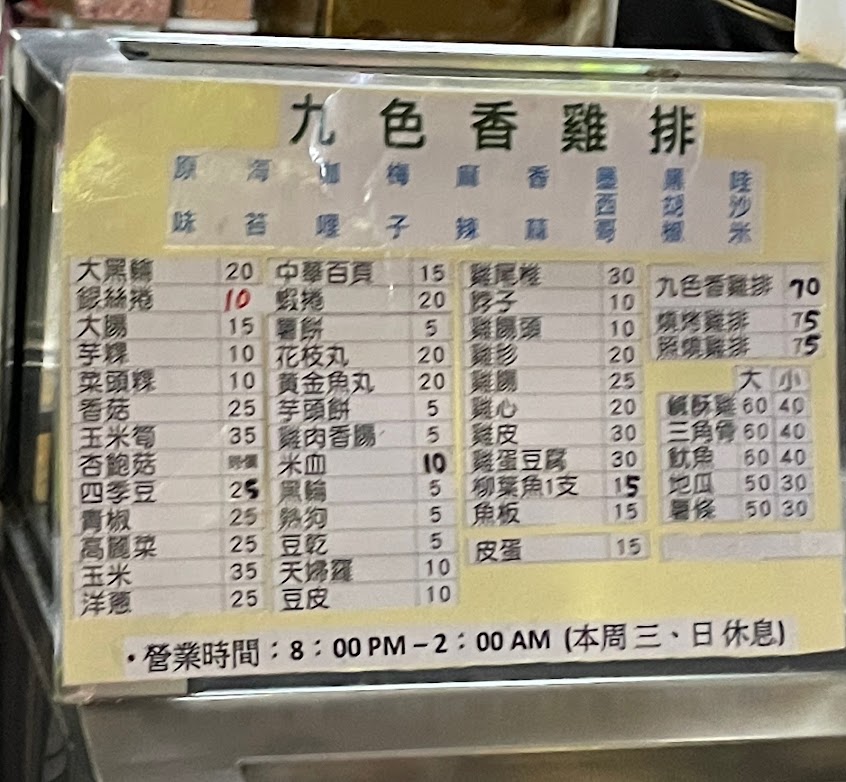 九色香雞排
原味 海苔 咖哩 梅子 麻辣 香蒜 墨西哥 黑胡椒 哇沙米
大黑輪 20
銀絲捲 10
大腸 15
芋粿 10
菜頭粿 10
香菇 25
玉米筍 35
杏鮑菇 時價
四季豆 25
青椒 25
高麗菜 25
玉米 35
洋蔥 25
中華百頁 15
蝦捲 20
薯餅 5
花枝丸 20
黃金魚丸 20
芋頭餅 5
雞肉香腸 5
米血 10
黑輪 5
熱狗 5
豆乾 5
天婦羅 10
豆皮 10
雞尾椎 30
脖子 10
雞腸頭 10
雞胗 20
雞腸 25
雞心 20
雞皮 30
雞蛋豆腐 30
柳葉魚1支 15
魚板 15
皮蛋 15
九色香雞排 70
燒烤雞排 75
照燒雞排 75
大 小
鹹酥雞 60 40
三角骨 60 40
魷魚 60 40
地瓜 50 30
薯條 50 30
•營業時間：8：00 PM – 2：00 AM (本周 三、日 休息)